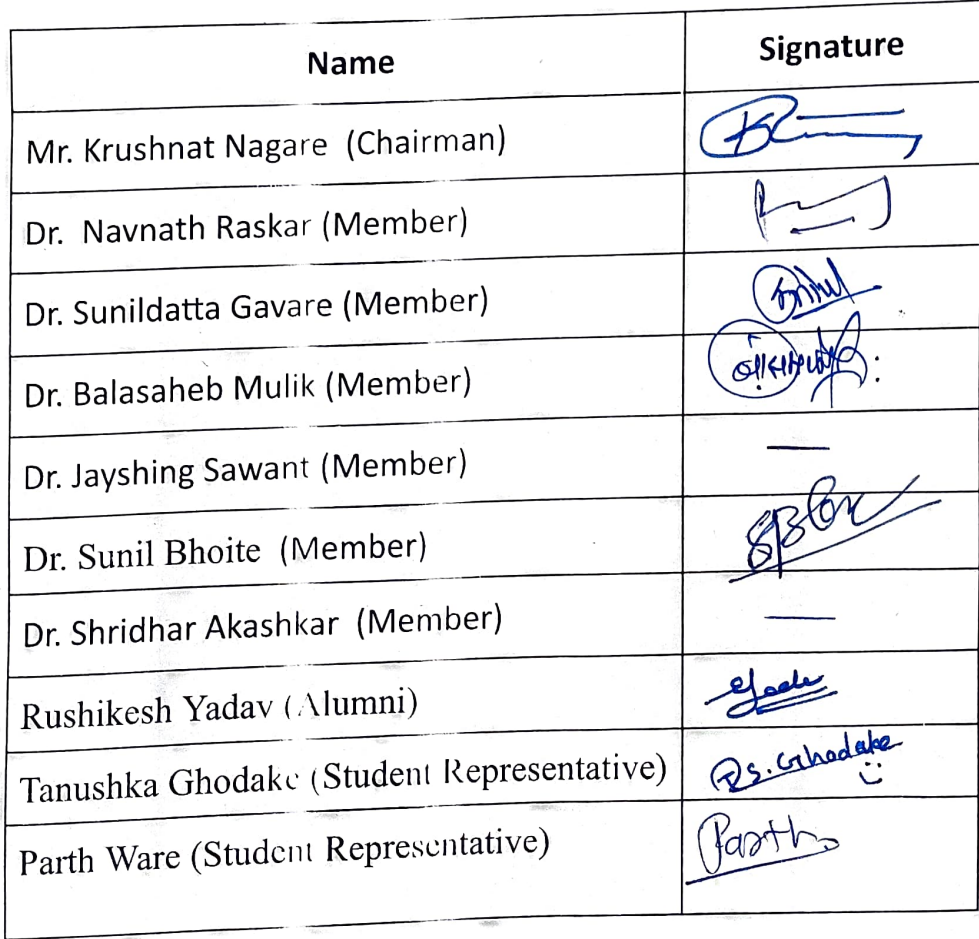 Name Signature
Mr. Krushnat Nagare (Chairman)
Dr. Navnath Raskar (Member)
Dr. Sunildatta Gavare (Member)
Dr. Balasaheb Mulik (Member)
Dr. Jayshing Sawant (Member) —
Dr. Sunil Bhoite (Member)
Dr. Shridhar Akashkar (Member) —
Rushikesh Yadav (Alumni)
Tanushka Ghodake (Student Representative) Ghodake
Parth Ware (Student Representative) Parth